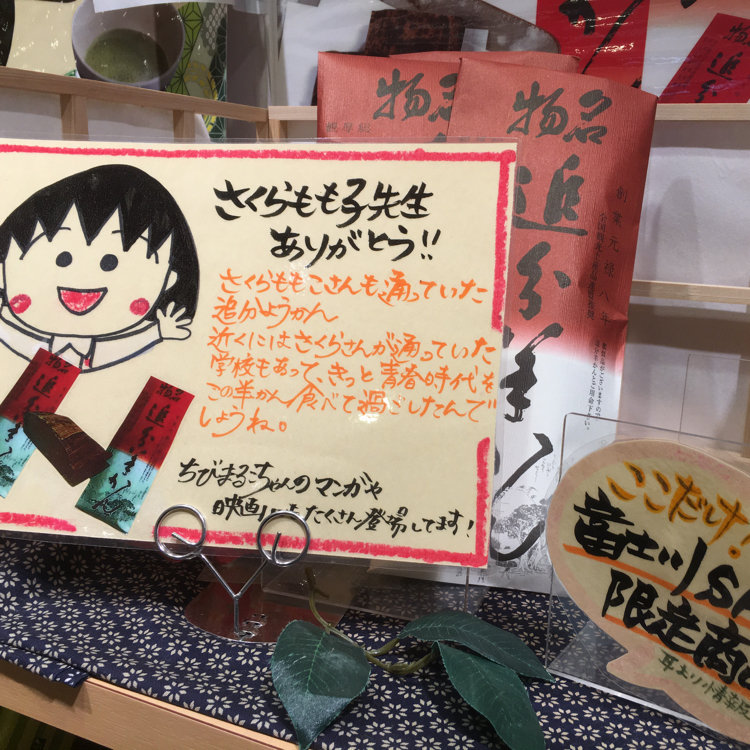 さくらもも子先生
ありがとう!!
さくらももこさんも通っていた
追分ようかん
近くにはさくらさんが通っていた
学校もあって、きっと青春時代を
この羊かん食べて過ごしたんで
しょうね。
ちびまるこちゃんのマンガや
映画にもたくさん登場してます!
名物
追分羊かん
創業元禄八年
名物
名物
追分羊かん
名物
追分羊かん
ここだけ!
富士川SA
限定商